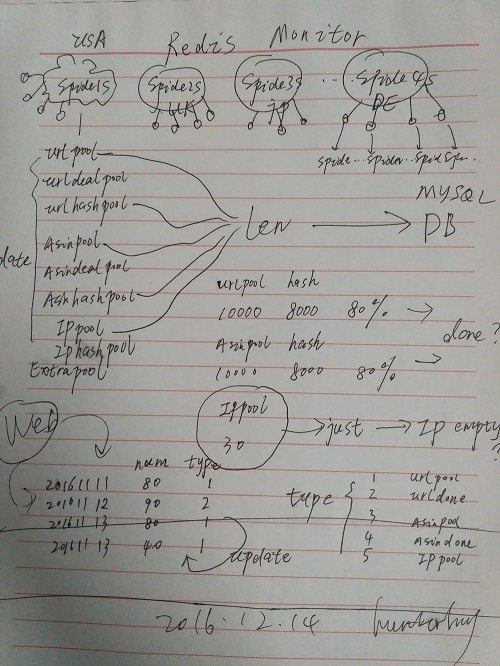 USA Redis Monitor
Spider1s Spider2s Spider3s ... Spide4s
UK JP DE
Spide... Spider... Spid Spider...
urlpool
urldealpool
urlhashpool
Asinpool
Asindealpool
Asinhashpool
IPpool
Iphashpool
Extrapool
date
len
MYSQL
DB
urlpool hash
10000 8000 80%
Asinpool hash
10000 8000 80%
done?
Web
IPpool
30
just
Ip empty
?
num type
20161111 80 1
20161112 90 2
20161113 80 1
20161113 40 1
update
type
1 urlpool
2 urldone
3 Asinpool
4 Asindone
5 IPpool
2016.12.14